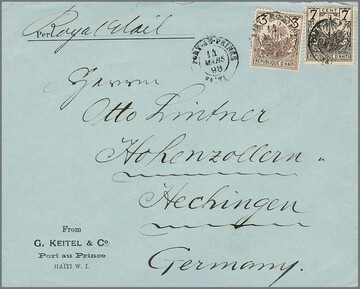 Per Royal Mail
3 3
7 CENT 7
REPUBLIQUE D'HAITI
PORT-AU-PRINCE
14
MARS
98
HAITI
Herrn
Otto Lintner
Hohenzollern
Hechingen
Germany.
From
G. KEITEL & Co.
Port au Prince
HAÏTI W. I.